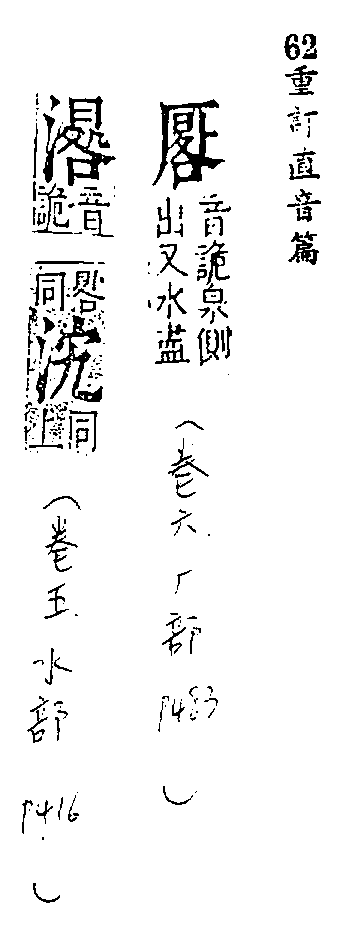 62重訂直音篇
音詭泉側
出又水盡
(卷六.厂部 P483)
音詭
同
同上
(卷五.水部 P416)